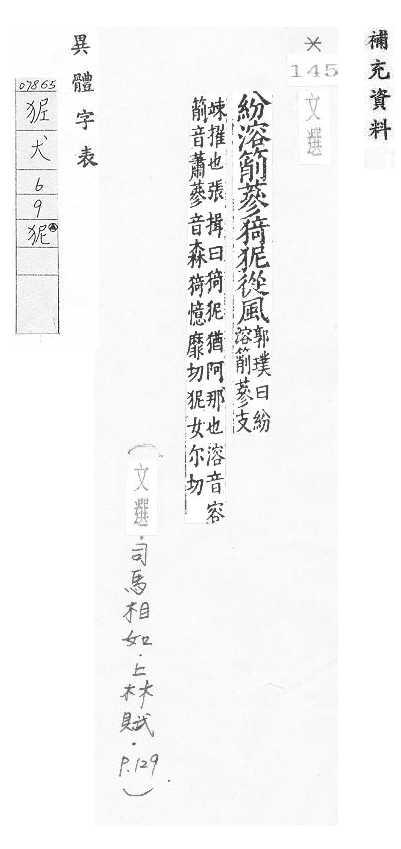 補充資料
*
145
文選
紛溶萷蔘猗狔從風郭璞曰紛
溶萷蔘支
竦擢也張揖曰猗狔猶阿那也溶音容
萷音蕭蔘音森猗憶靡切狔女尔切
(文選·司馬相如·上林賦·P.129)
異體字表
07865
狔
犬
6
9
狔